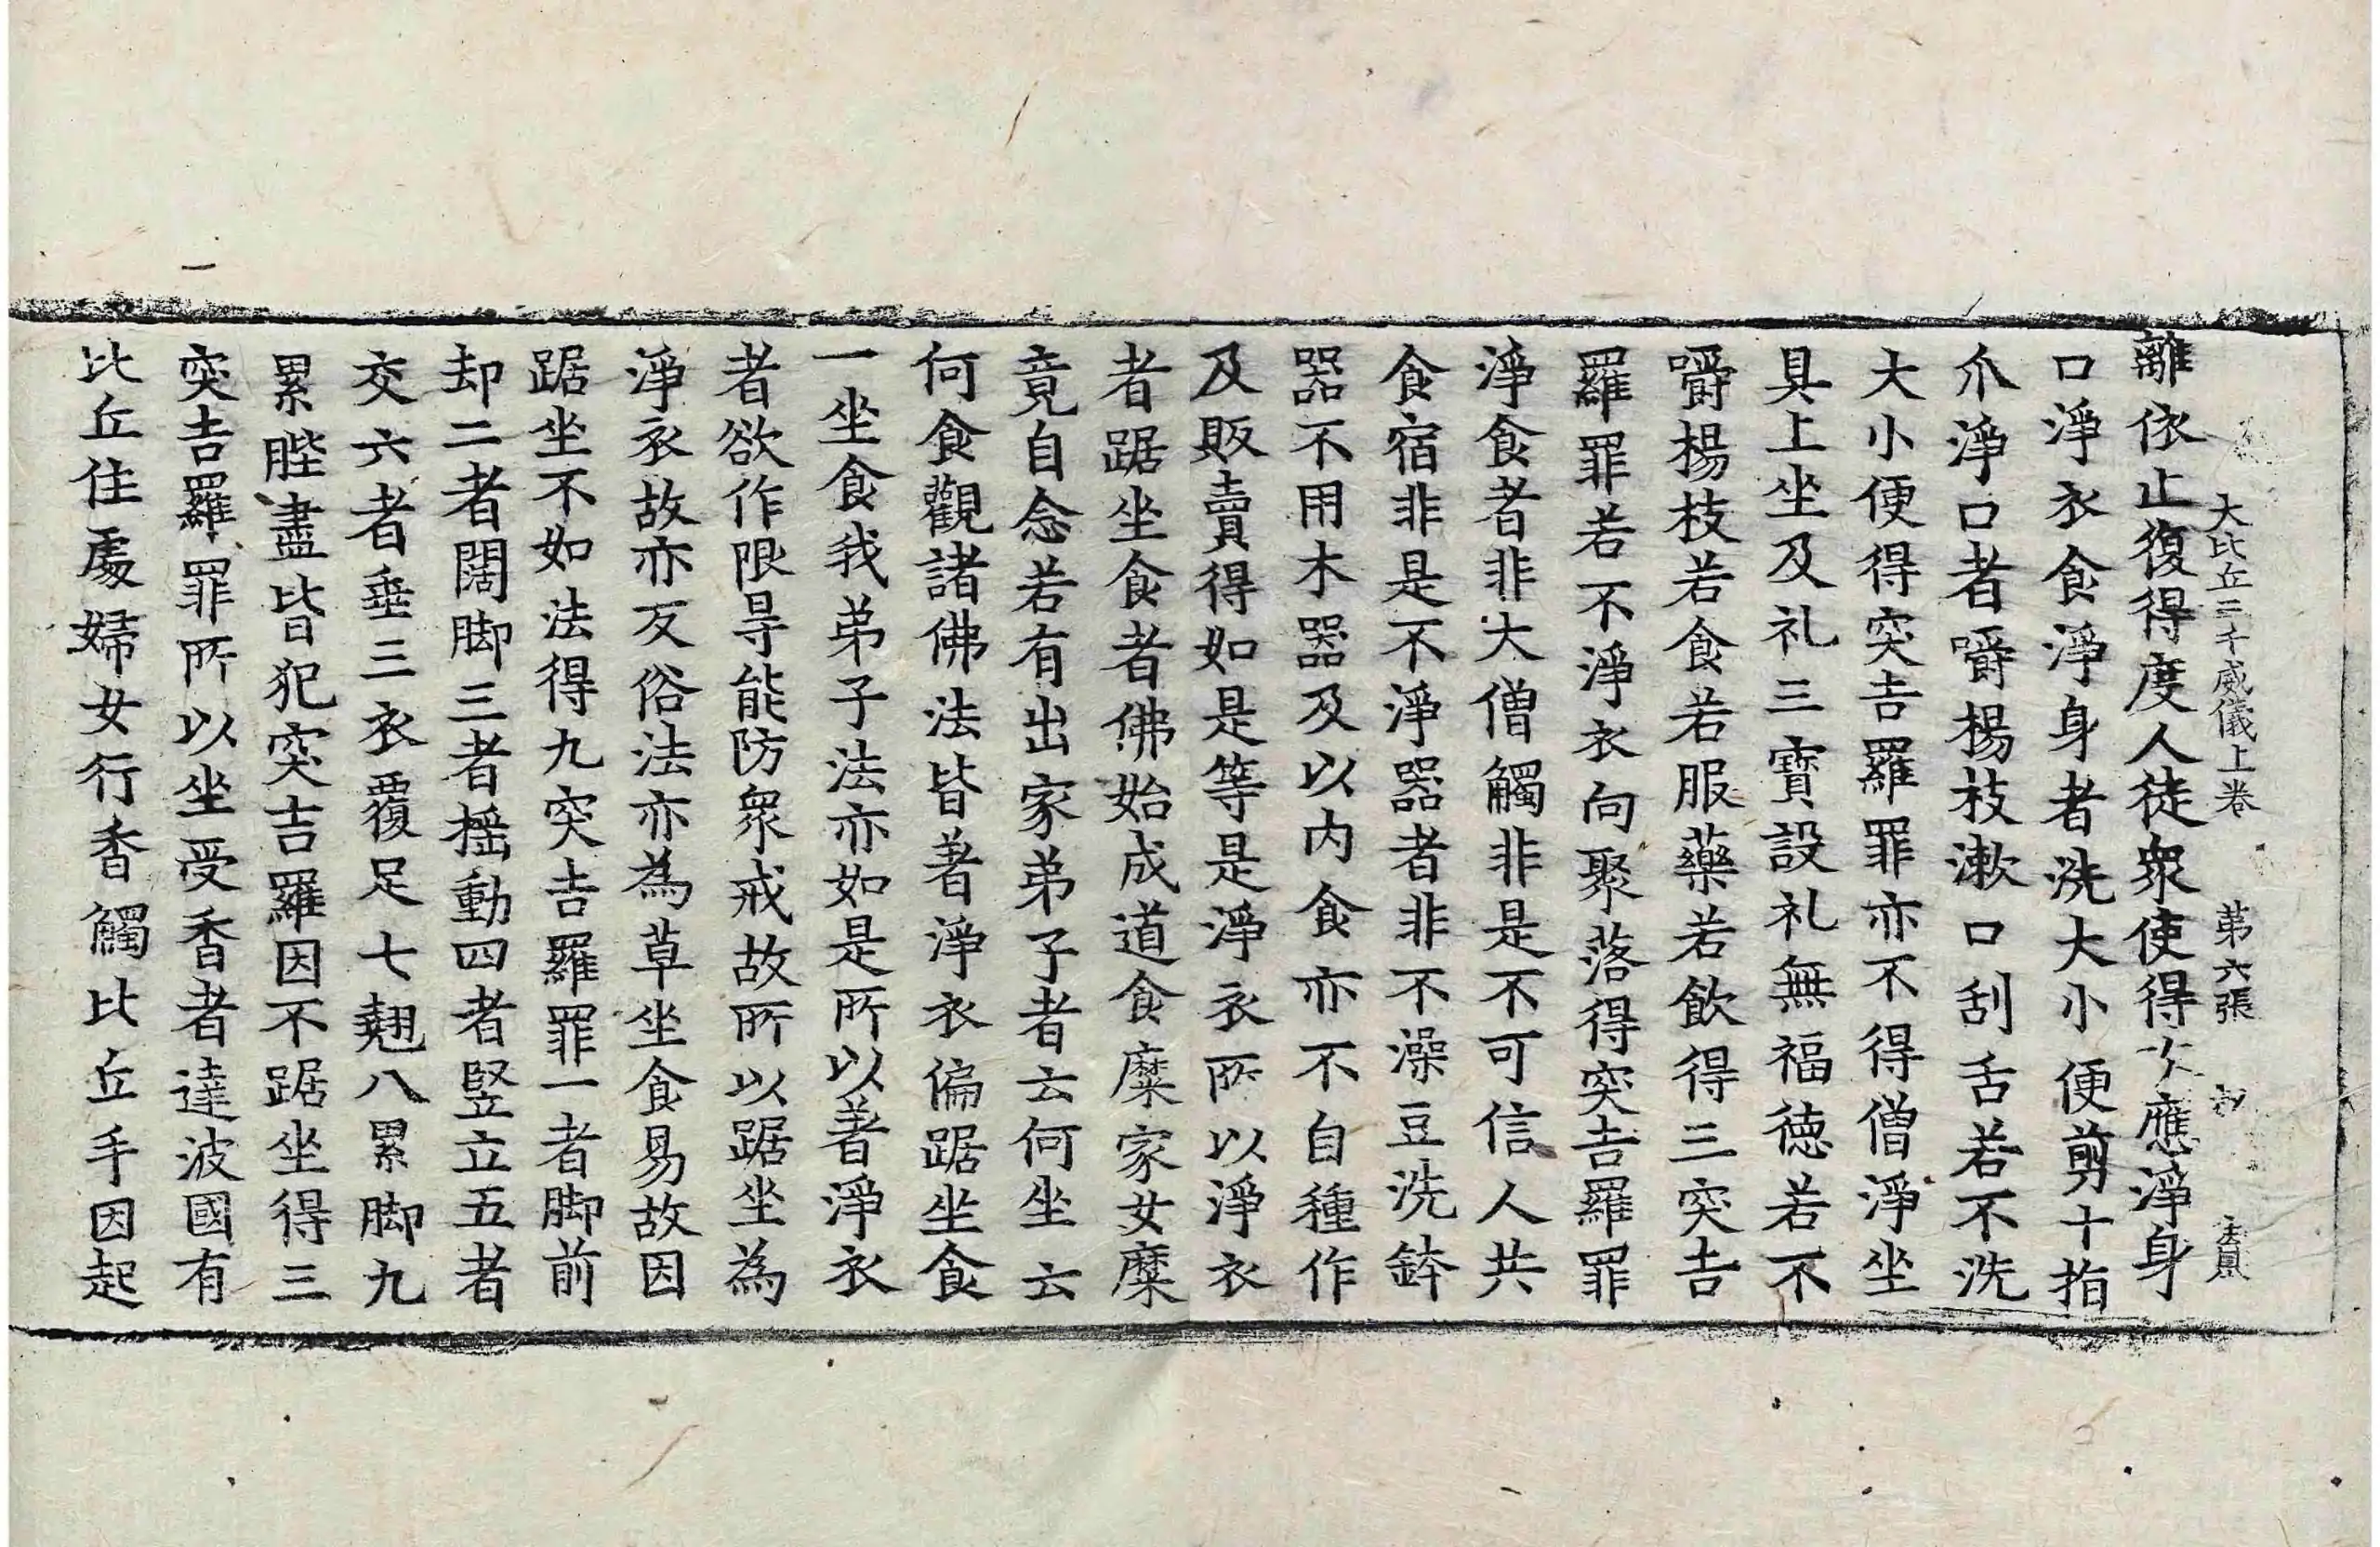 大比丘三千威儀上卷　第六張　初　法鳳
離依止復得度人徒衆使得次應淨身
口淨衣食淨身者洗大小便剪十指
爪淨口者嚼楊枝漱口刮舌若不洗
大小便得突吉羅罪亦不得僧淨坐
具上坐及礼三寶設礼無福德若不
嚼楊枝若食若服藥若飲得三突吉
羅罪若不淨衣向聚落得突吉羅罪
淨食者非大僧觸非是不可信人共
食宿非是不淨器者非不澡豆洗鉢
器不用木器及以内食亦不自種作
及販賣得如是等是淨衣所以淨衣
者踞坐食者佛始成道食糜家女糜
竟自念若有出家弟子者云何坐云
何食觀諸佛法皆著淨衣偏踞坐食
一坐食我弟子法亦如是所以著淨衣
者欲作限㝵能防衆戒故所以踞坐為
淨衣故亦反俗法亦為草坐食易故因
踞坐不如法得九突吉羅罪一者脚前
却二者闊脚三者揺動四者竪立五者
交六者垂三衣覆足七翹八累脚九
累䏶盡皆犯突吉羅因不踞坐得三
突吉羅罪所以坐受香者達波國有
比丘住處婦女行香觸比丘手因起